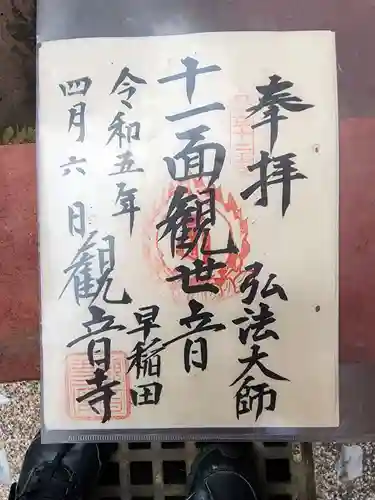 奉拝
弘法大師
十一面観世音
早稲田
観音寺
令和五年
四月六日